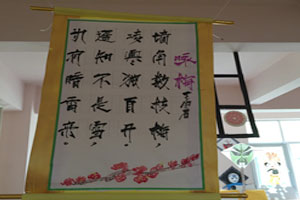 咏梅
王安石
墙角数枝梅
凌寒独自开
遥知不是雪
为有暗香来